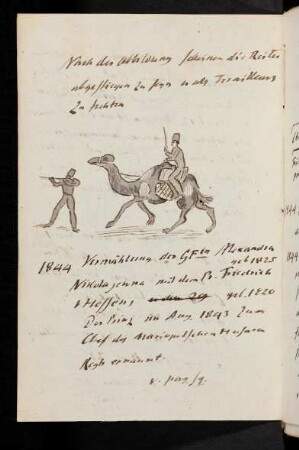 Nach der Abbildung scheinen die Reiter
abgestiegen zu seyn u als Tirailleurs
zu fechten
1844 Vermählung der GFstn Alexandra
geb 1825
Nikolajevna mit dem Pr. Friedrich
v Hessen, geb. 1820
Der Prinz im Aug 1843 zum
Chef des Mariupolschen Husaren
Regts ernannt.
v. pag